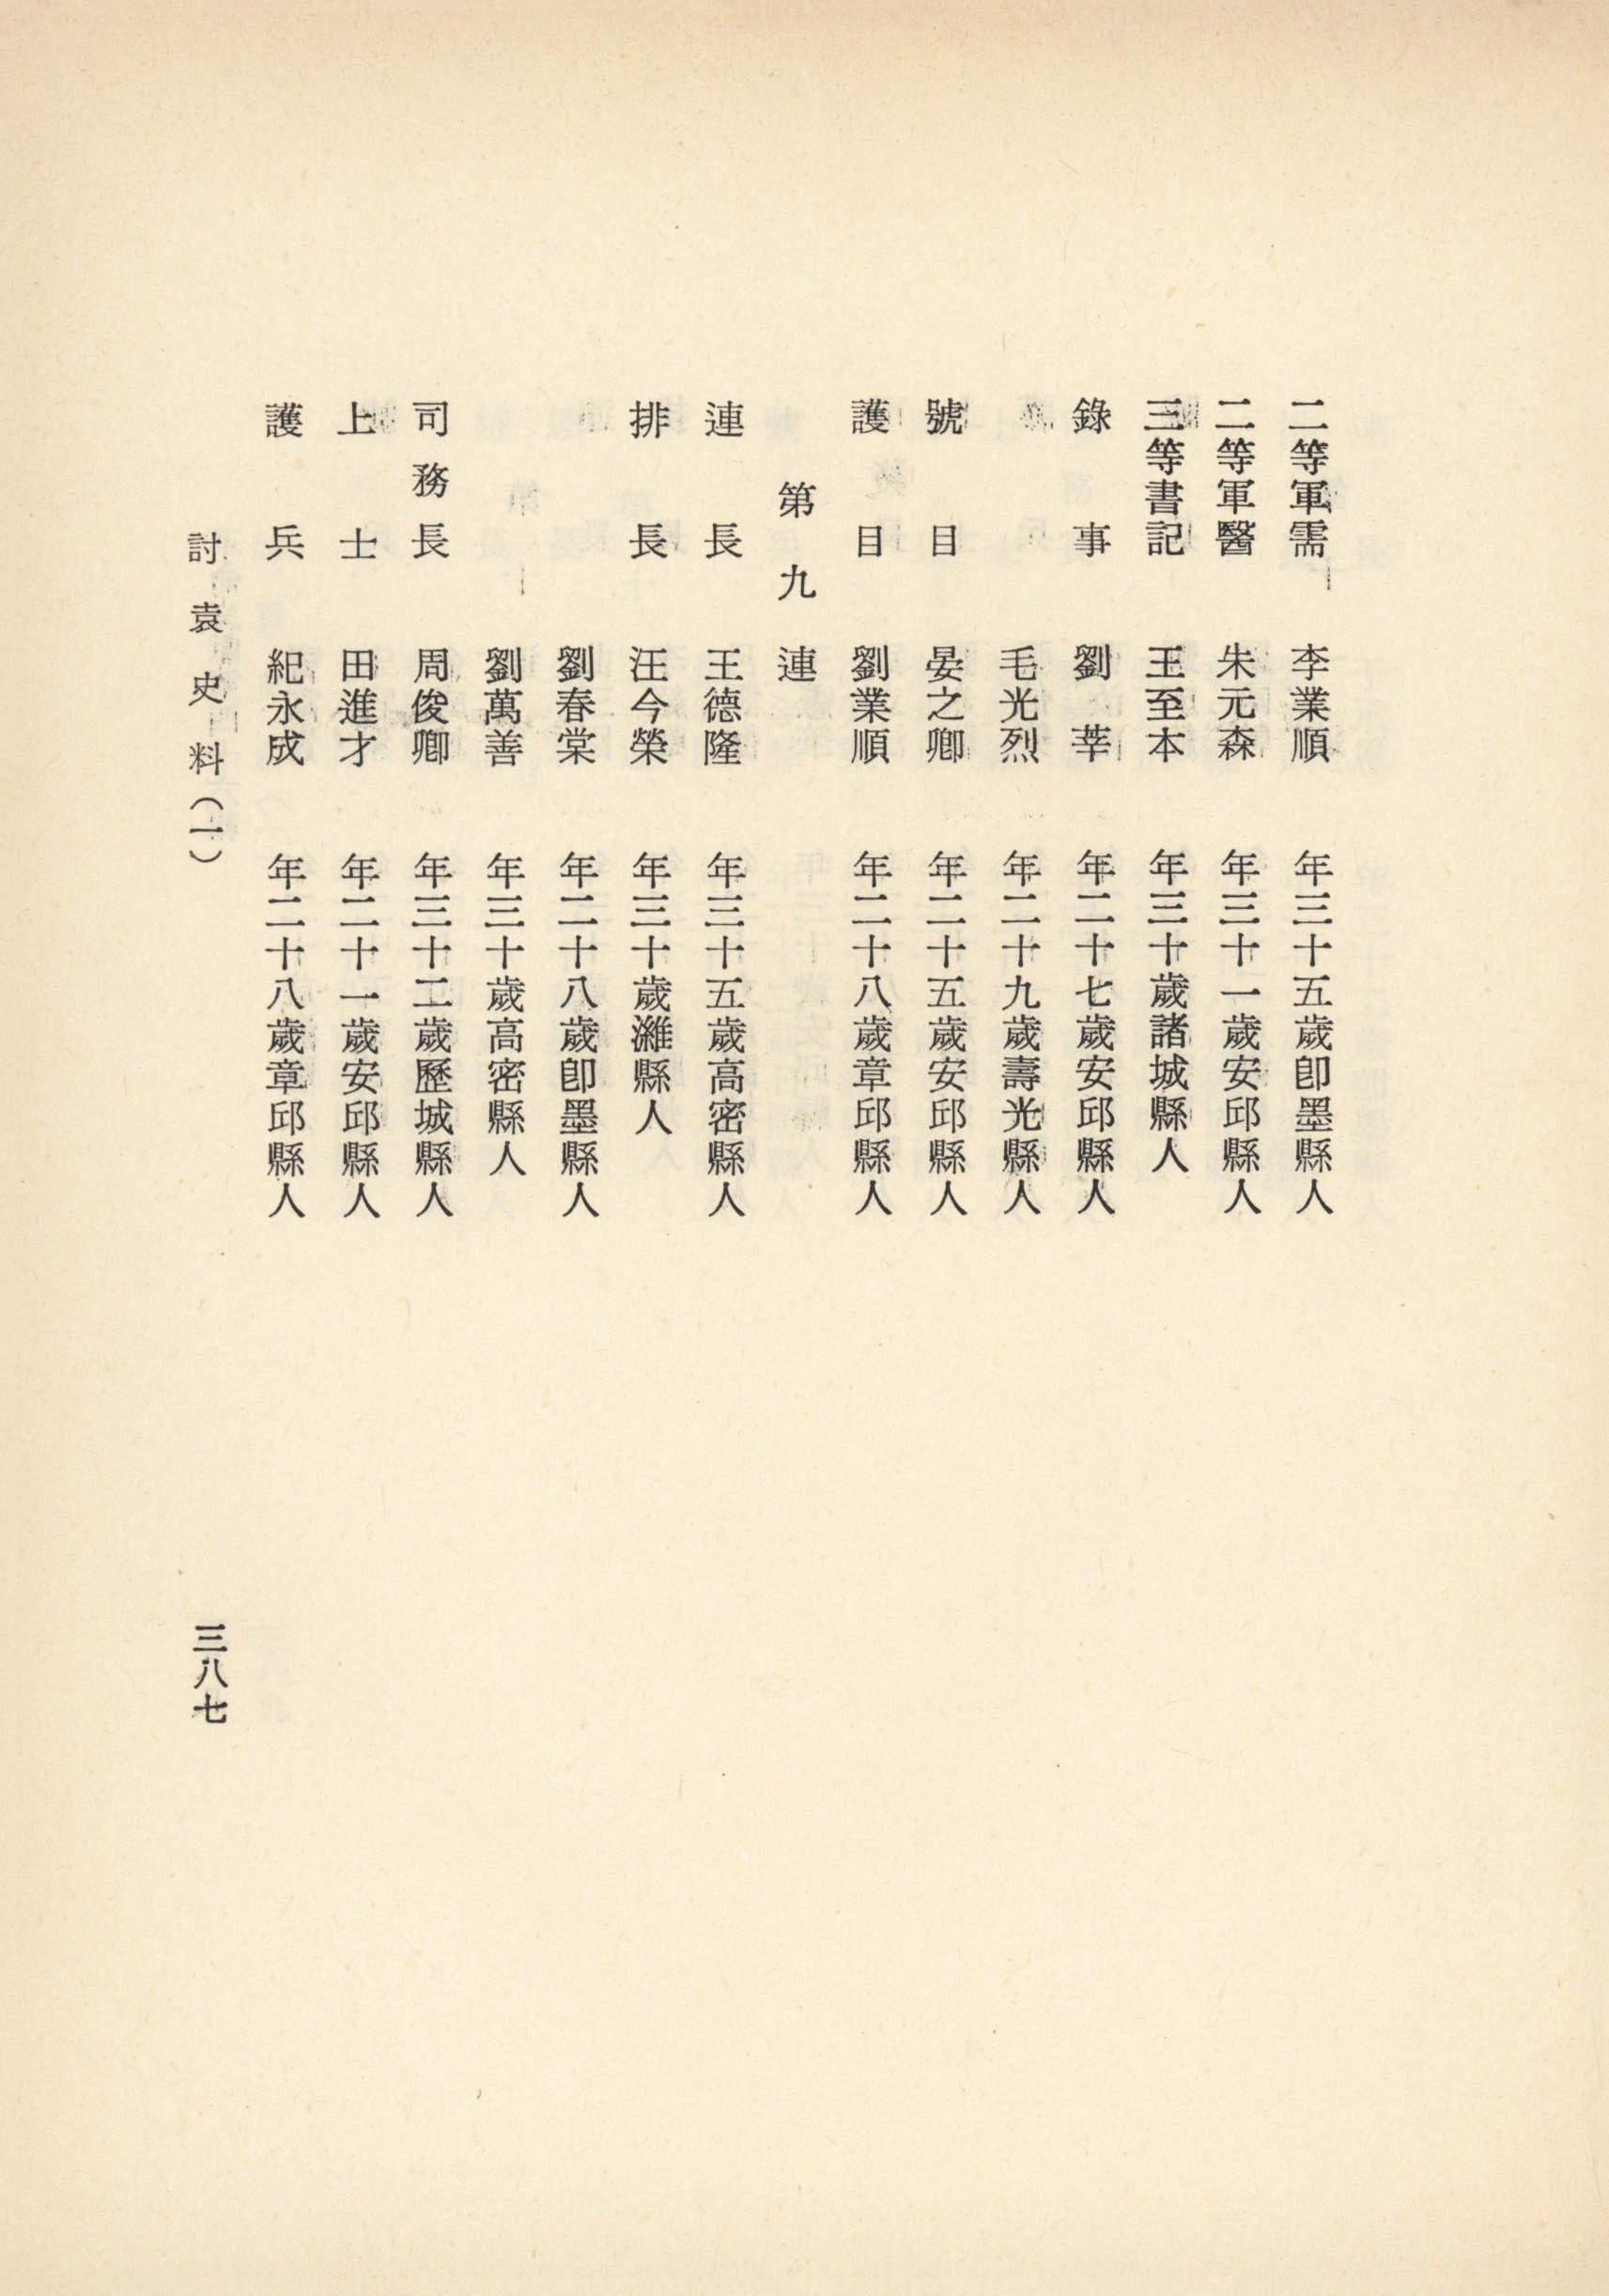 二等軍需　李業順　年三十五歲卽墨縣人
二等軍醫　朱元森　年三十一歲安邱縣人
三等書記　王至本　年三十歲諸城縣人
錄事　劉莘　年二十七歲安邱縣人
毛光烈　年二十九歲壽光縣人
號目　晏之卿　年二十五歲安邱縣人
護目　劉業順　年二十八歲章邱縣人
第九連
連長　王德隆　年三十五歲高密縣人
排長　汪今榮　年三十歲濰縣人
劉春棠　年二十八歲卽墨縣人
劉萬善　年三十歲高密縣人
司務長　周俊卿　年三十二歲歷城縣人
上士　田進才　年二十一歲安邱縣人
護兵　紀永成　年二十八歲章邱縣人
討袁史料（一）
三八七